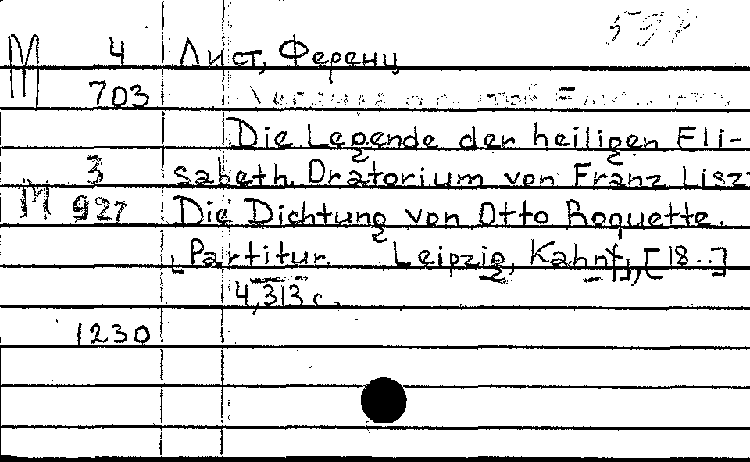 М 4 Лист, Ференц
703
Die Legende der heiligen Eli-
3 sabeth. Oratorium von Franz Liszt
М 927 Die Dichtung von Otto Roquette.
Partitur. Leipzig, Kahnt, [18..]
4,313 с.
1230